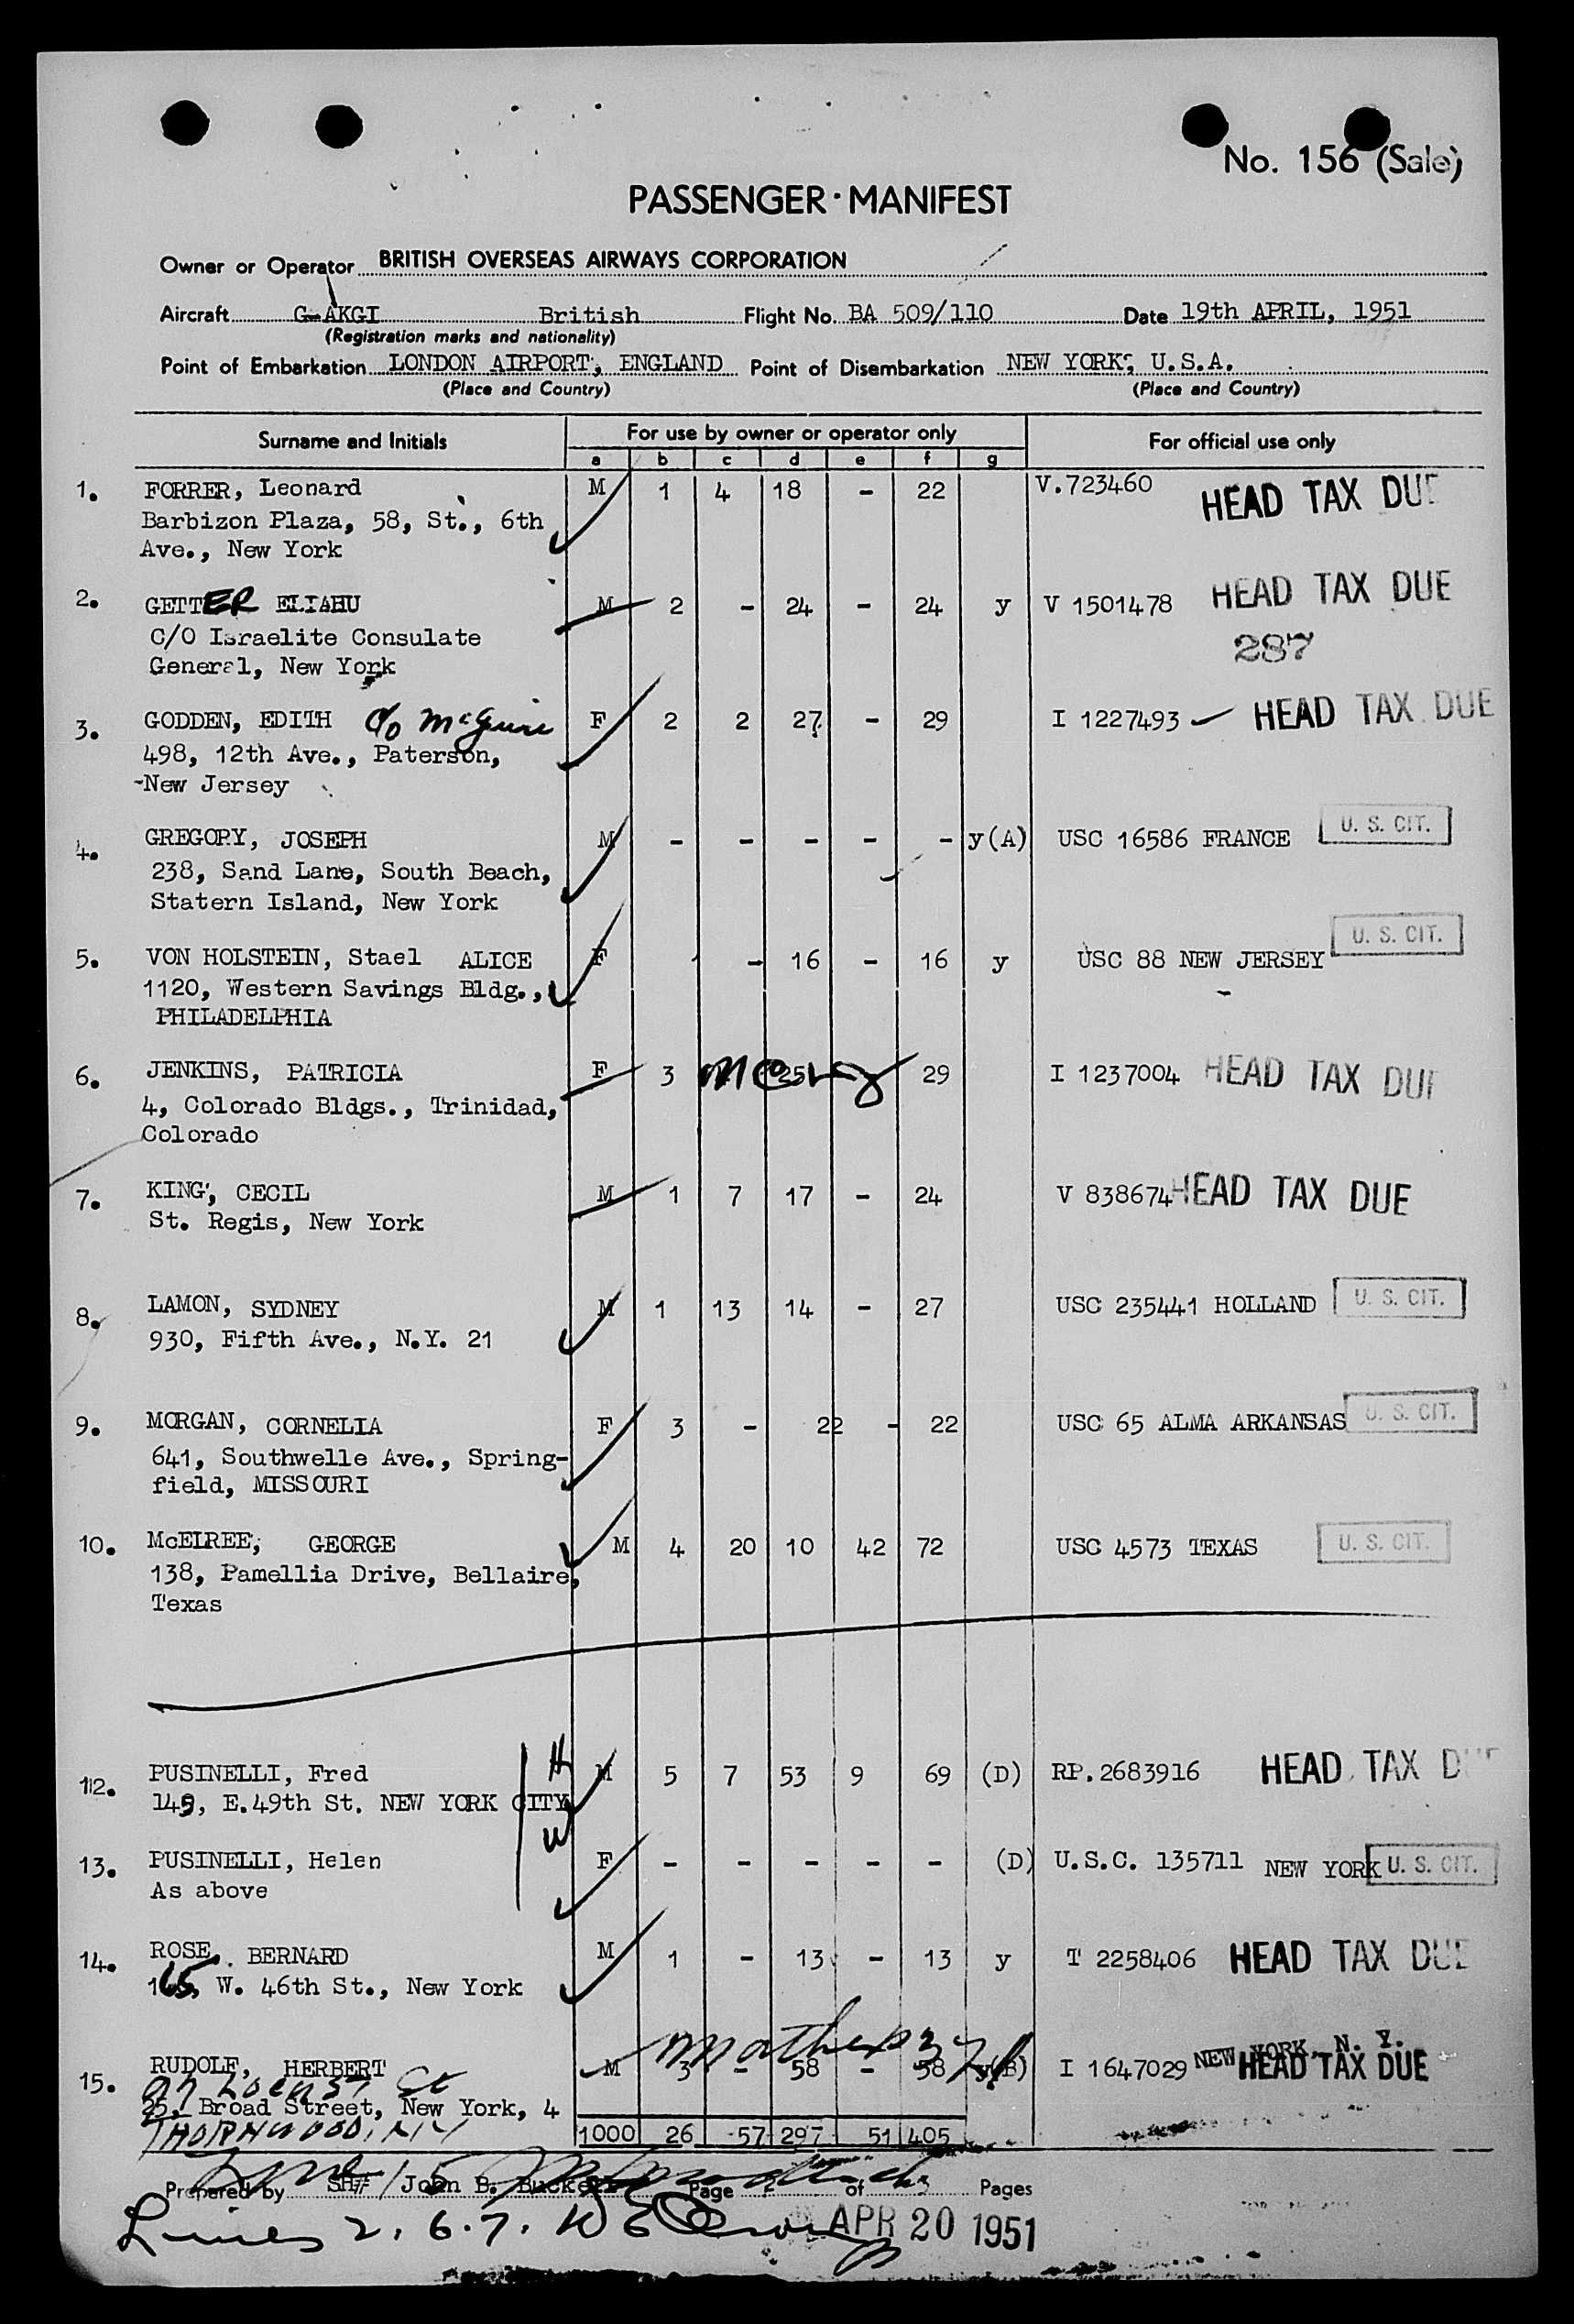 No. 156 (Sale)
PASSENGER · MANIFEST
Owner or Operator BRITISH OVERSEAS AIRWAYS CORPORATION
Aircraft G-AKGI British Flight No. BA 509/110 Date 19th APRIL, 1951
(Registration marks and nationality)
Point of Embarkation LONDON AIRPORT, ENGLAND Point of Disembarkation NEW YORK, U.S.A.
(Place and Country) (Place and Country)
Surname and Initials For use by owner or operator only For official use only
a b c d e f g
1. FORRER, Leonard M 1 4 18 - 22 V.723460 HEAD TAX DUE
Barbizon Plaza, 58, St., 6th
Ave., New York
2. GETTER ELIAHU M 2 - 24 - 24 y V 1501478 HEAD TAX DUE
C/O Israelite Consulate 287
General, New York
3. GODDEN, EDITH c/o McGuire F 2 2 27 - 29 I 1227493 HEAD TAX DUE
498, 12th Ave., Paterson,
New Jersey
4. GREGORY, JOSEPH M - - - - - y(A) USC 16586 FRANCE U. S. CIT.
238, Sand Lane, South Beach,
Statern Island, New York
5. VON HOLSTEIN, Stael ALICE F - 16 - 16 y USC 88 NEW JERSEY U. S. CIT.
1120, Western Savings Bldg.,
PHILADELPHIA
6. JENKINS, PATRICIA F 3 25 29 I 1237004 HEAD TAX DUE
4, Colorado Bldgs., Trinidad,
Colorado
7. KING, CECIL M 1 7 17 - 24 V 838674 HEAD TAX DUE
St. Regis, New York
8. LAMON, SYDNEY M 1 13 14 - 27 USC 235441 HOLLAND U. S. CIT.
930, Fifth Ave., N.Y. 21
9. MORGAN, CORNELIA F 3 - 22 - 22 USC 65 ALMA ARKANSAS U. S. CIT.
641, Southwelle Ave., Spring-
field, MISSOURI
10. McELREE, GEORGE M 4 20 10 42 72 USC 4573 TEXAS U. S. CIT.
138, Pamellia Drive, Bellaire,
Texas
12. PUSINELLI, Fred H M 5 7 53 9 69 (D) RP.2683916 HEAD TAX DUE
149, E.49th St. NEW YORK CITY
W
13. PUSINELLI, Helen F - - - - - (D) U.S.C. 135711 NEW YORK U. S. CIT.
As above
14. ROSE, BERNARD M 1 - 13 - 13 y T 2258406 HEAD TAX DUE
165, W. 46th St., New York
15. RUDOLF, HERBERT M 3 - 58 - 58 y(B) I 1647029 NEW YORK, N. Y. HEAD TAX DUE
97 Locust St
25, Broad Street, New York, 4
THORNWOOD, N.Y
1000 26 57 297 51 405
Prepared by SH# / John B. Page 2 of Pages
Lines 2. 6. 7.
APR 20 1951